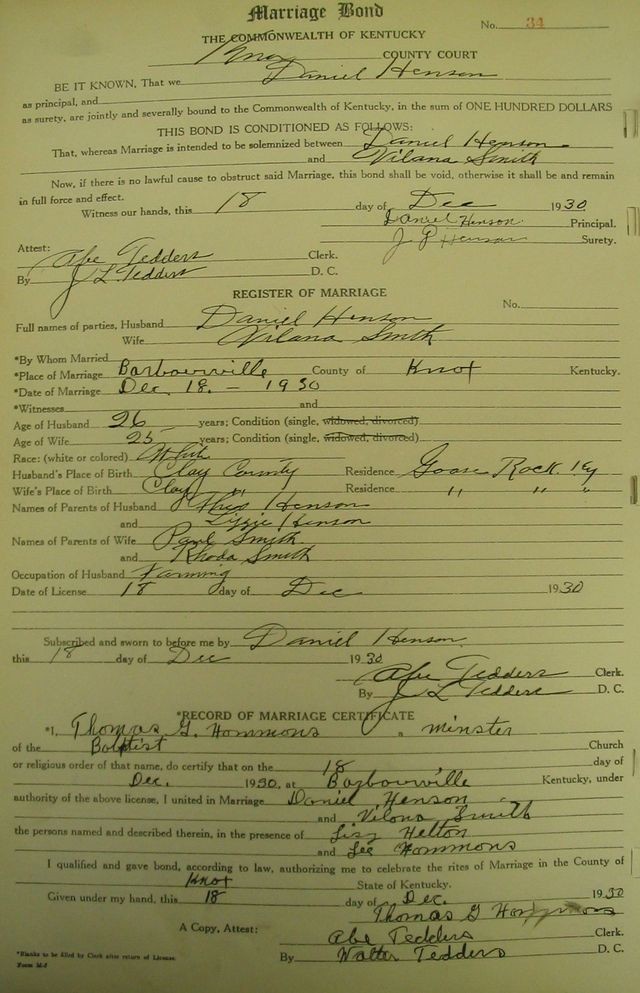 Marriage Bond
No. 34
THE COMMONWEALTH OF KENTUCKY
Knox COUNTY COURT
BE IT KNOWN, That we Daniel Henson
as principal, and
as surety, are jointly and severally bound to the Commonwealth of Kentucky, in the sum of ONE HUNDRED DOLLARS
THIS BOND IS CONDITIONED AS FOLLOWS:
That, whereas Marriage is intended to be solemnized between Daniel Henson
and Vilana Smith
Now, if there is no lawful cause to obstruct said Marriage, this bond shall be void, otherwise it shall be and remain
in full force and effect.
Witness our hands, this 18 day of Dec 1930
Daniel Henson Principal.
J P Henson Surety.
Attest:
Abe Tedders Clerk.
By J L Tedders D. C.
REGISTER OF MARRIAGE
No.
Full names of parties, Husband Daniel Henson
Wife Vilana Smith
*By Whom Married
*Place of Marriage Barbourville County of Knox Kentucky.
*Date of Marriage Dec 18. - 1930
*Witnesses and
Age of Husband 26 years; Condition (single, widowed, divorced)
Age of Wife 25 years; Condition (single, widowed, divorced)
Race: (white or colored) White
Husband's Place of Birth Clay County Residence Goose Rock Ky
Wife's Place of Birth Clay " Residence " " "
Names of Parents of Husband Henson
and Lizzie Henson
Names of Parents of Wife Paul Smith
and Rhoda Smith
Occupation of Husband Farming
Date of License 18 day of Dec 1930
Subscribed and sworn to before me by Daniel Henson
this 18 day of Dec 1930
Abe Tedders Clerk.
By J L Tedders D. C.
*RECORD OF MARRIAGE CERTIFICATE
*I, Thomas G. Hommons a minster
of the Baptist Church
or religious order of that name, do certify that on the 18 day of
Dec. 1930, at Barbourville Kentucky, under
authority of the above license, I united in Marriage Daniel Henson
and Vilona Smith
the persons named and described therein, in the presence of Lizy Helton
and Lee Hommons
I qualified and gave bond, according to law, authorizing me to celebrate the rites of Marriage in the County of
Knox State of Kentucky.
Given under my hand, this 18 day of Dec. 1930
Thomas G Hommons
A Copy, Attest: Abe Tedders Clerk.
By Walter Tedders D. C.
*Blanks to be filled by Clerk after return of License.